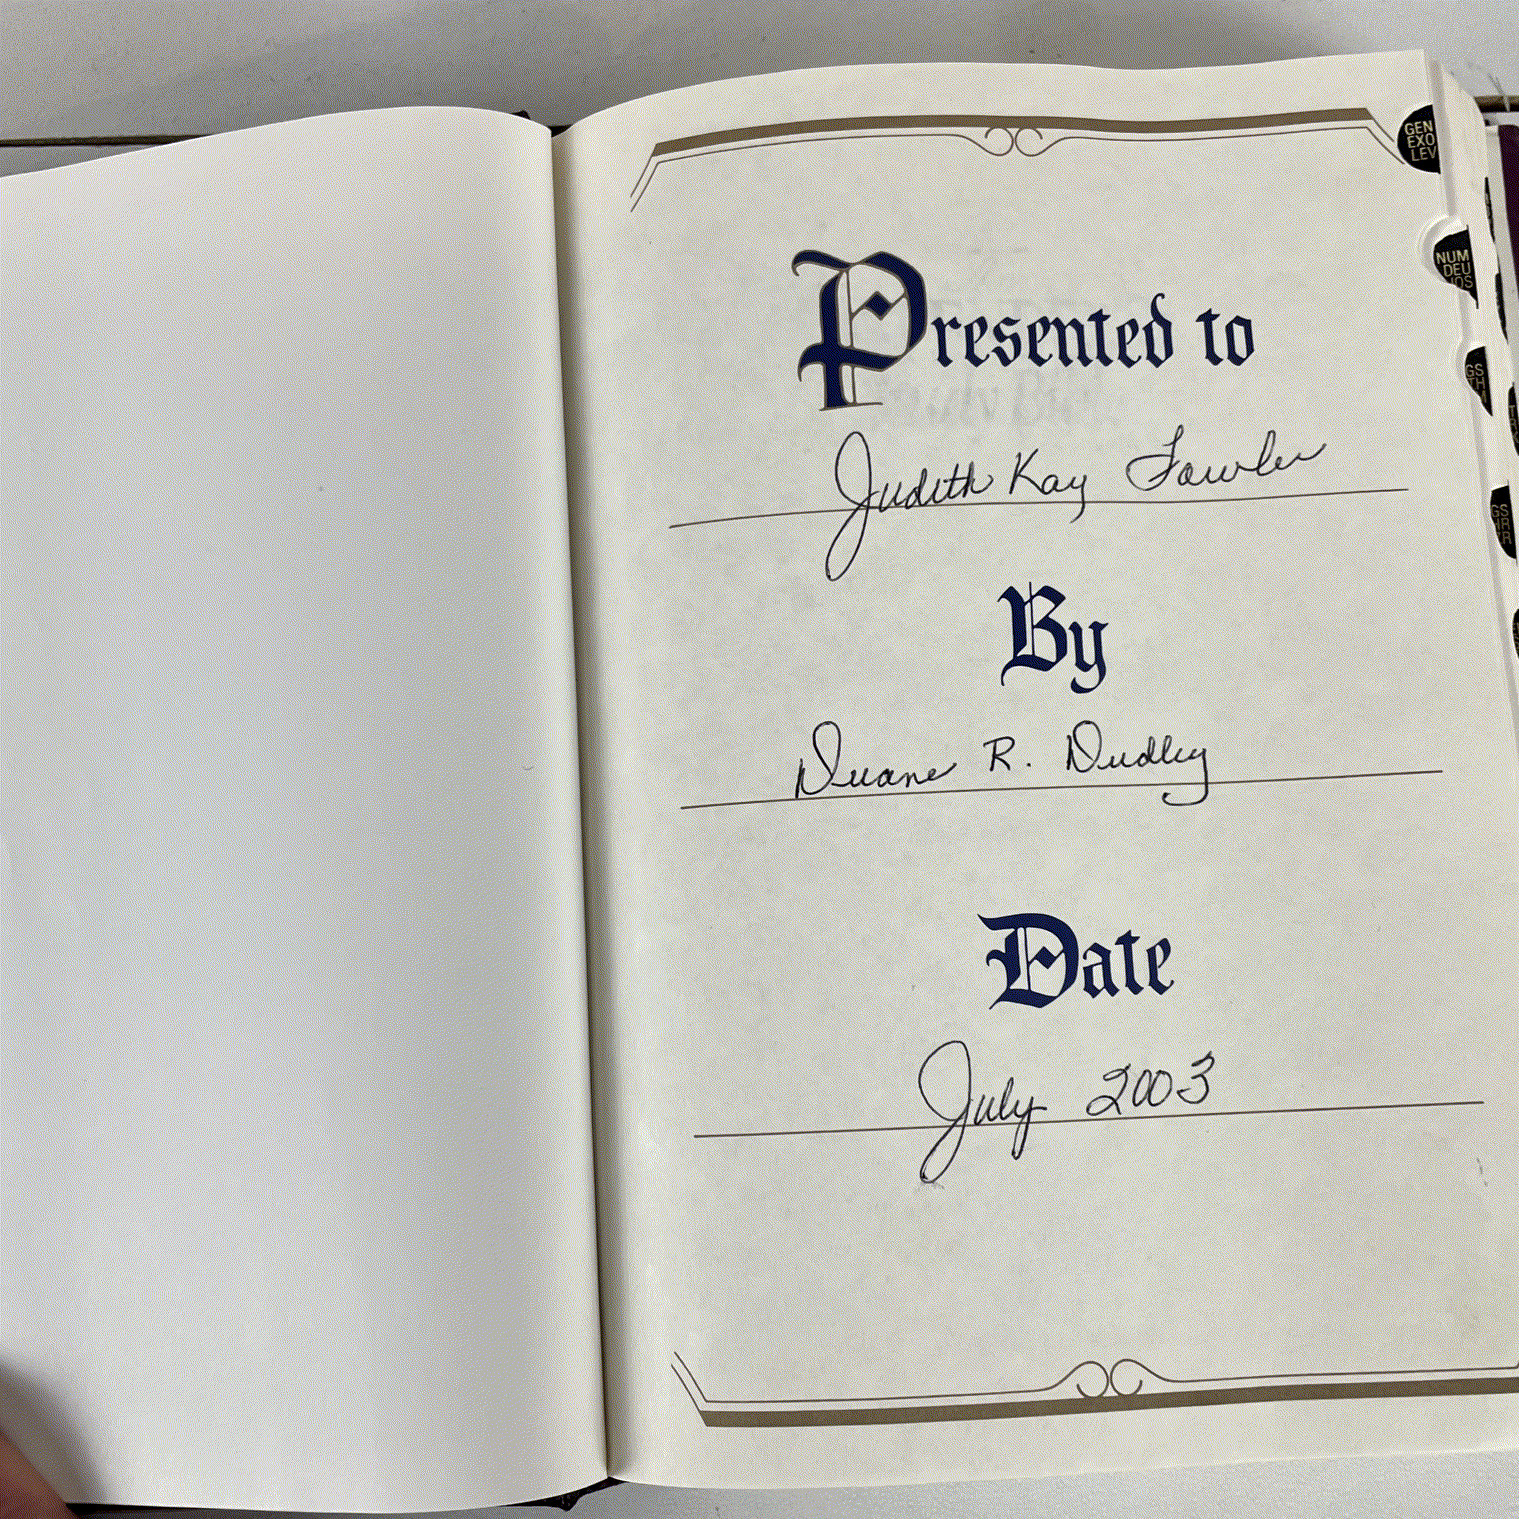 Presented to
Judith Kay Fowler
By
Duane R. Dudley
Date
July 2003
GEN
EXO
LEV
NUM
DEU
JOS